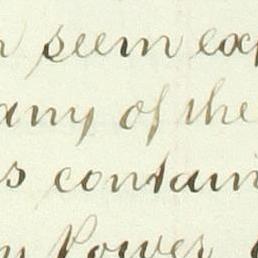 seem
any of the
contain
Power